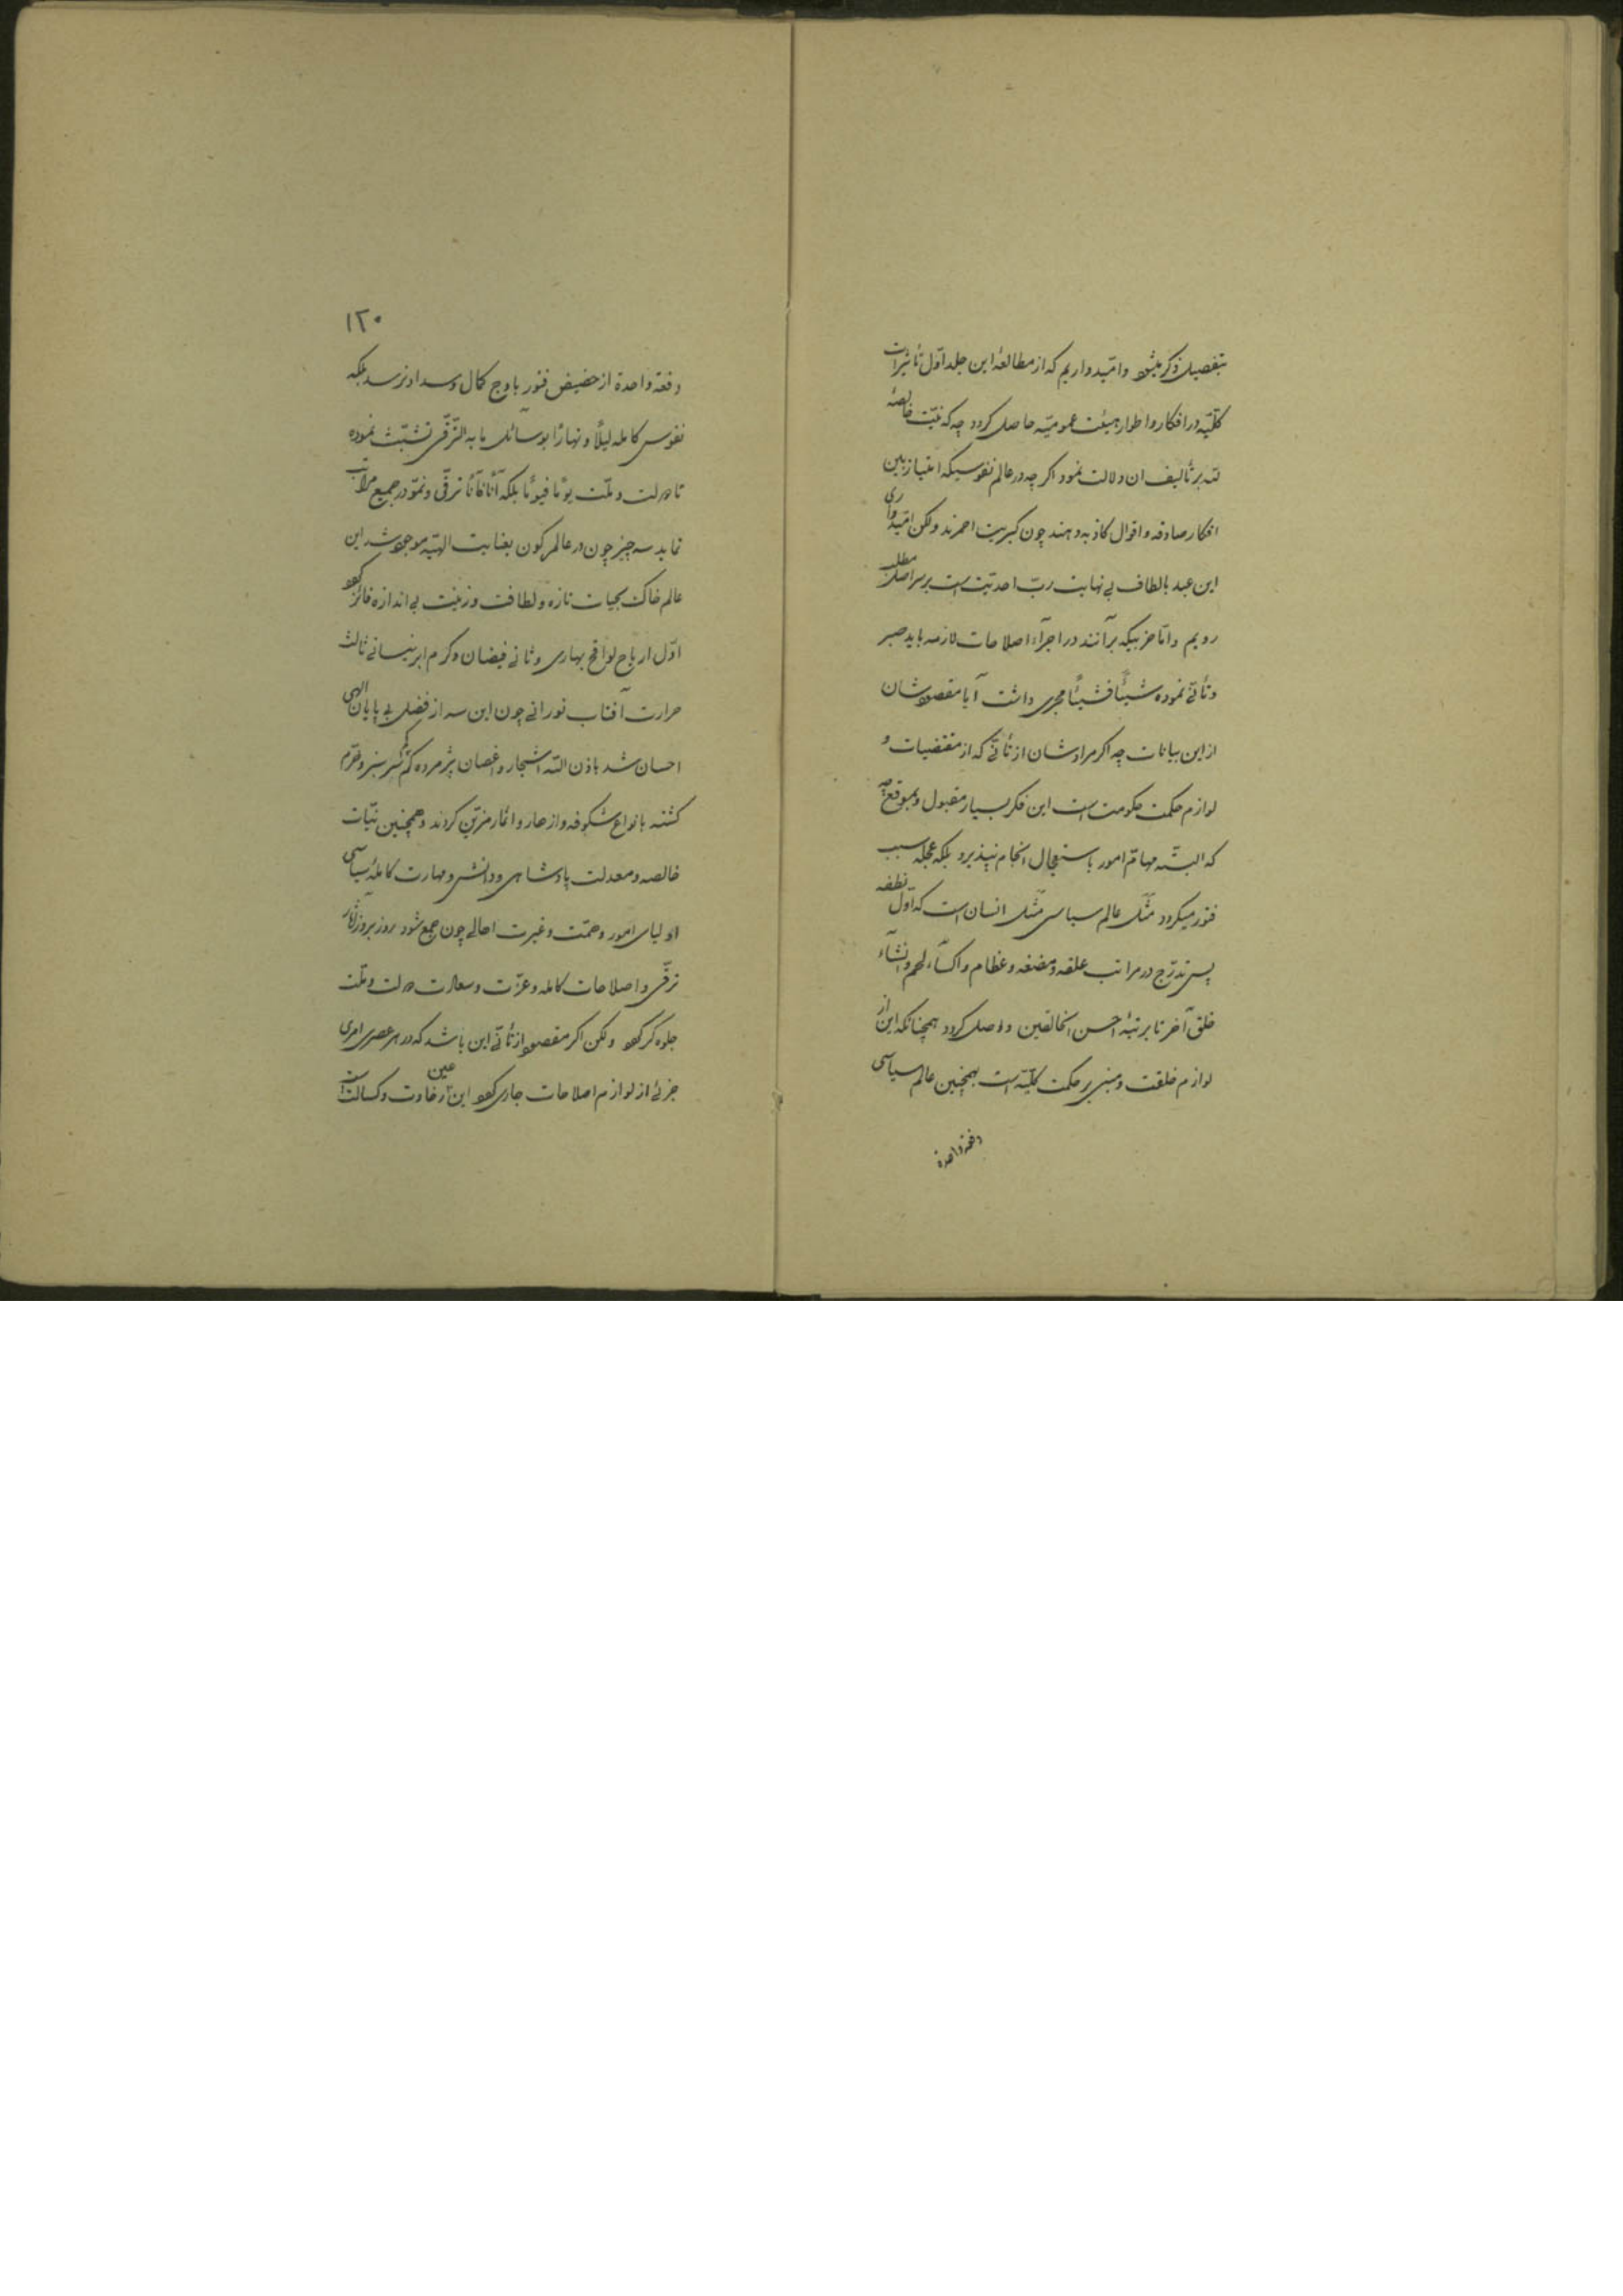 بتفصیل ذکر میشود و امّیدواریم که از مطالعهٔ این جلد اوّل تأثیرات
کلّیّه در افکار و اطوار هیئت عمومیّه حاصل کردد چه که نیّت خالصهٔ
لله بر تألیف ان دلالت نمود اکر چه در عالم نفوسیکه امتیاز بین
افکار صادقه و اقوال کاذبه دهند چون کبریت احمرند ولکن امّیدواری
این عبد بالطاف بی نهایت ربّ احدیّت است بر سر اصل مطلب
رویم و امّا حزبیکه برآنند در اجرآء اصلاحات لازمه باید صبر
و تأنّی نموده شیئًا فشیئًا مجری داشت آیا مقصودشان
از این بیانات چه اکر مرادشان از تأنّی که از مقتضیات و
لوازم حکمت حکومت است این فکر بسیار مقبول و بموقع چه
که البتّه مهامّ امور باستعجال انجام نپذیرد بلکه عجله سبب
فتور میکردد مثَل عالم سیاسی مثَل انسان است که اوّل نطفه
پس تدرّج در مراتب علقه و مضغه و عظام و اکسآء لحم و انشآء
خلق آخر تا برتبهٔ احسن الخالقین واصل کردد همچنانکه این از
لوازم خلقت و مبنی بر حکمت کلّیّه است بهمچنین عالم سیاسی
دفعة واحدة
١٢٠
دفعة واحدة از حضیض فتور باوج کمال و سداد نرسد بلکه
نفوس کامله لیلًا و نهارًا بوسائل ما به الترّقّی تشبّث نموده
تا دولت و ملّت یومًا فیومًا بلکه آنًا فآنًا ترقّی و نموّ در جمیع مراتب
نماید سه چیز چون در عالم کون بعنایت الهیّه موجود شد این
عالم خاک بحیات تازه و لطافت و زینت بی اندازه فائز کردد
اوّل اریاح لواقح بهاری و ثانی فیضان و کرم ابر نیسانی ثالث
حرارت آفتاب نورانی چون این سه از فضل بی پایان الهی
احسان شد باذن الله اشجار و اغصان پژمرده کم کم سرسبز و خرّم
کشته بانواع شکوفه و ازهار و اثمار مزیّن کردند و همچنین نیّات
خالصه و معدلت پادشاهی و دانش و مهارت کاملهٔ سیاسی
اولیای امور و همّت و غیرت اهالی چون جمع شود روز بروز آثار
ترقّی و اصلاحات کامله و عزّت و سعادت دولت و ملّت
جلوه کر کردد ولکن اکر مقصود از تأنّی این باشد که در هر عصری امری
جزئی از لوازم اصلاحات جاری کردد این عین رخاوت و کسالت است